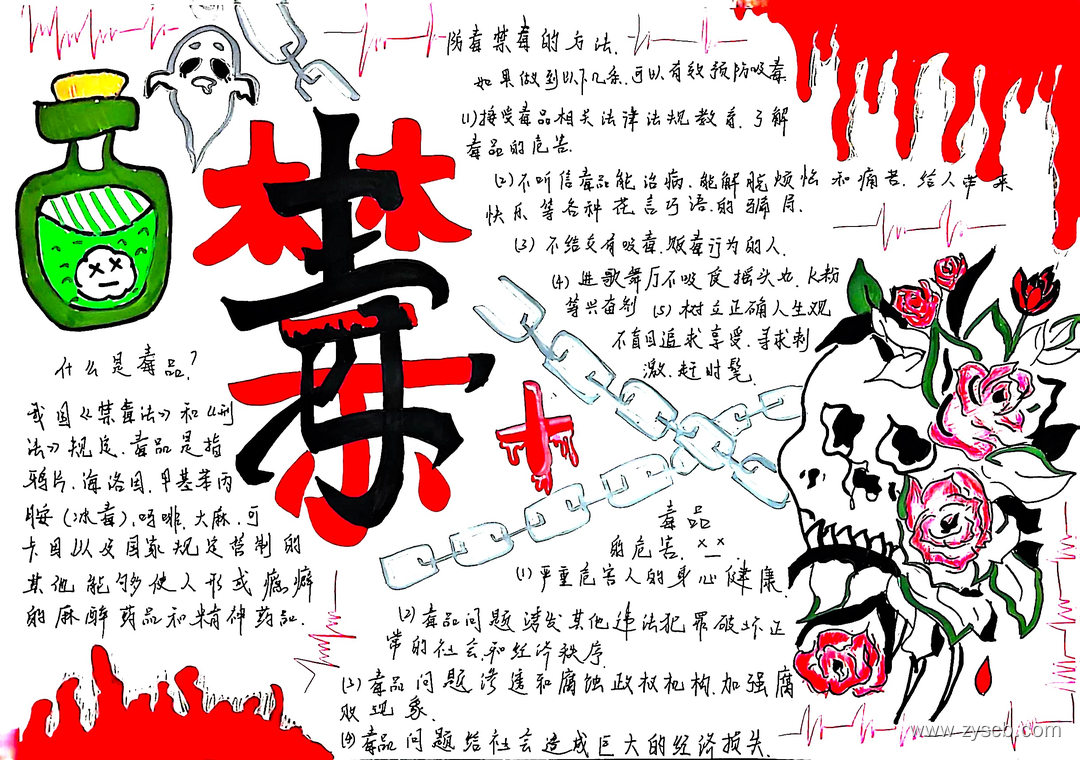 禁毒
防毒禁毒的方法.
如果做到以下几条.可以有效预防吸毒
(1)接受毒品相关法律法规教育.了解
毒品的危害.
(2)不听信毒品能治病.能解脱烦恼和痛苦.给人带来
快乐等各种花言巧语.的骗局.
(3) 不结交有吸毒.贩毒行为的人.
(4) 进歌舞厅不吸食摇头丸.K粉
等兴奋剂 (5) 树立正确人生观
不盲目追求享受.寻求刺
激.赶时髦.
什么是毒品?
我国《禁毒法》和《刑
法》规定.毒品是指
鸦片.海洛因.甲基苯丙
胺(冰毒).吗啡.大麻.可
卡因以及国家规定管制的
其他能够使人形成瘾癖
的麻醉药品和精神药品.
毒品
的危害.
(1)严重危害人的身心健康.
(2)毒品问题诱发其他违法犯罪破坏正
常的社会.和经济秩序.
(3)毒品问题渗透和腐蚀政权机构.加强腐
败现象.
(4)毒品问题给社会造成巨大的经济损失.
www.zyseb.com